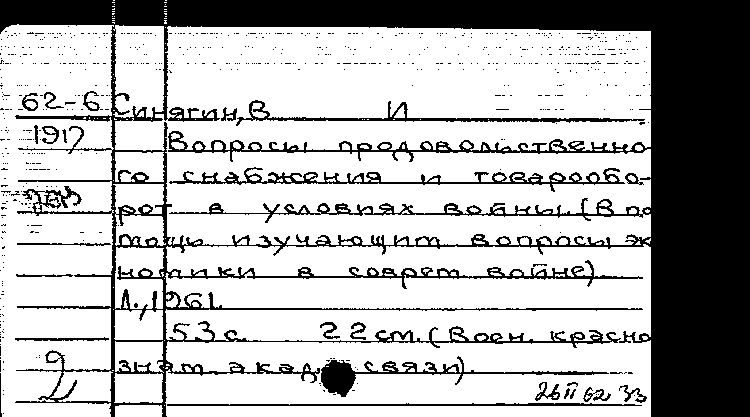 62-6 Синягин, В И
1917
Вопросы продовольственно-
го снабжения и товарообо-
рот в условиях войны. (В по
мощь изучающим вопросы эк
номики в соврем войне).
Л., 1961.
53 с. 22 см. (Воен. красно
знам. акад. связи).
2
26 II 62 33